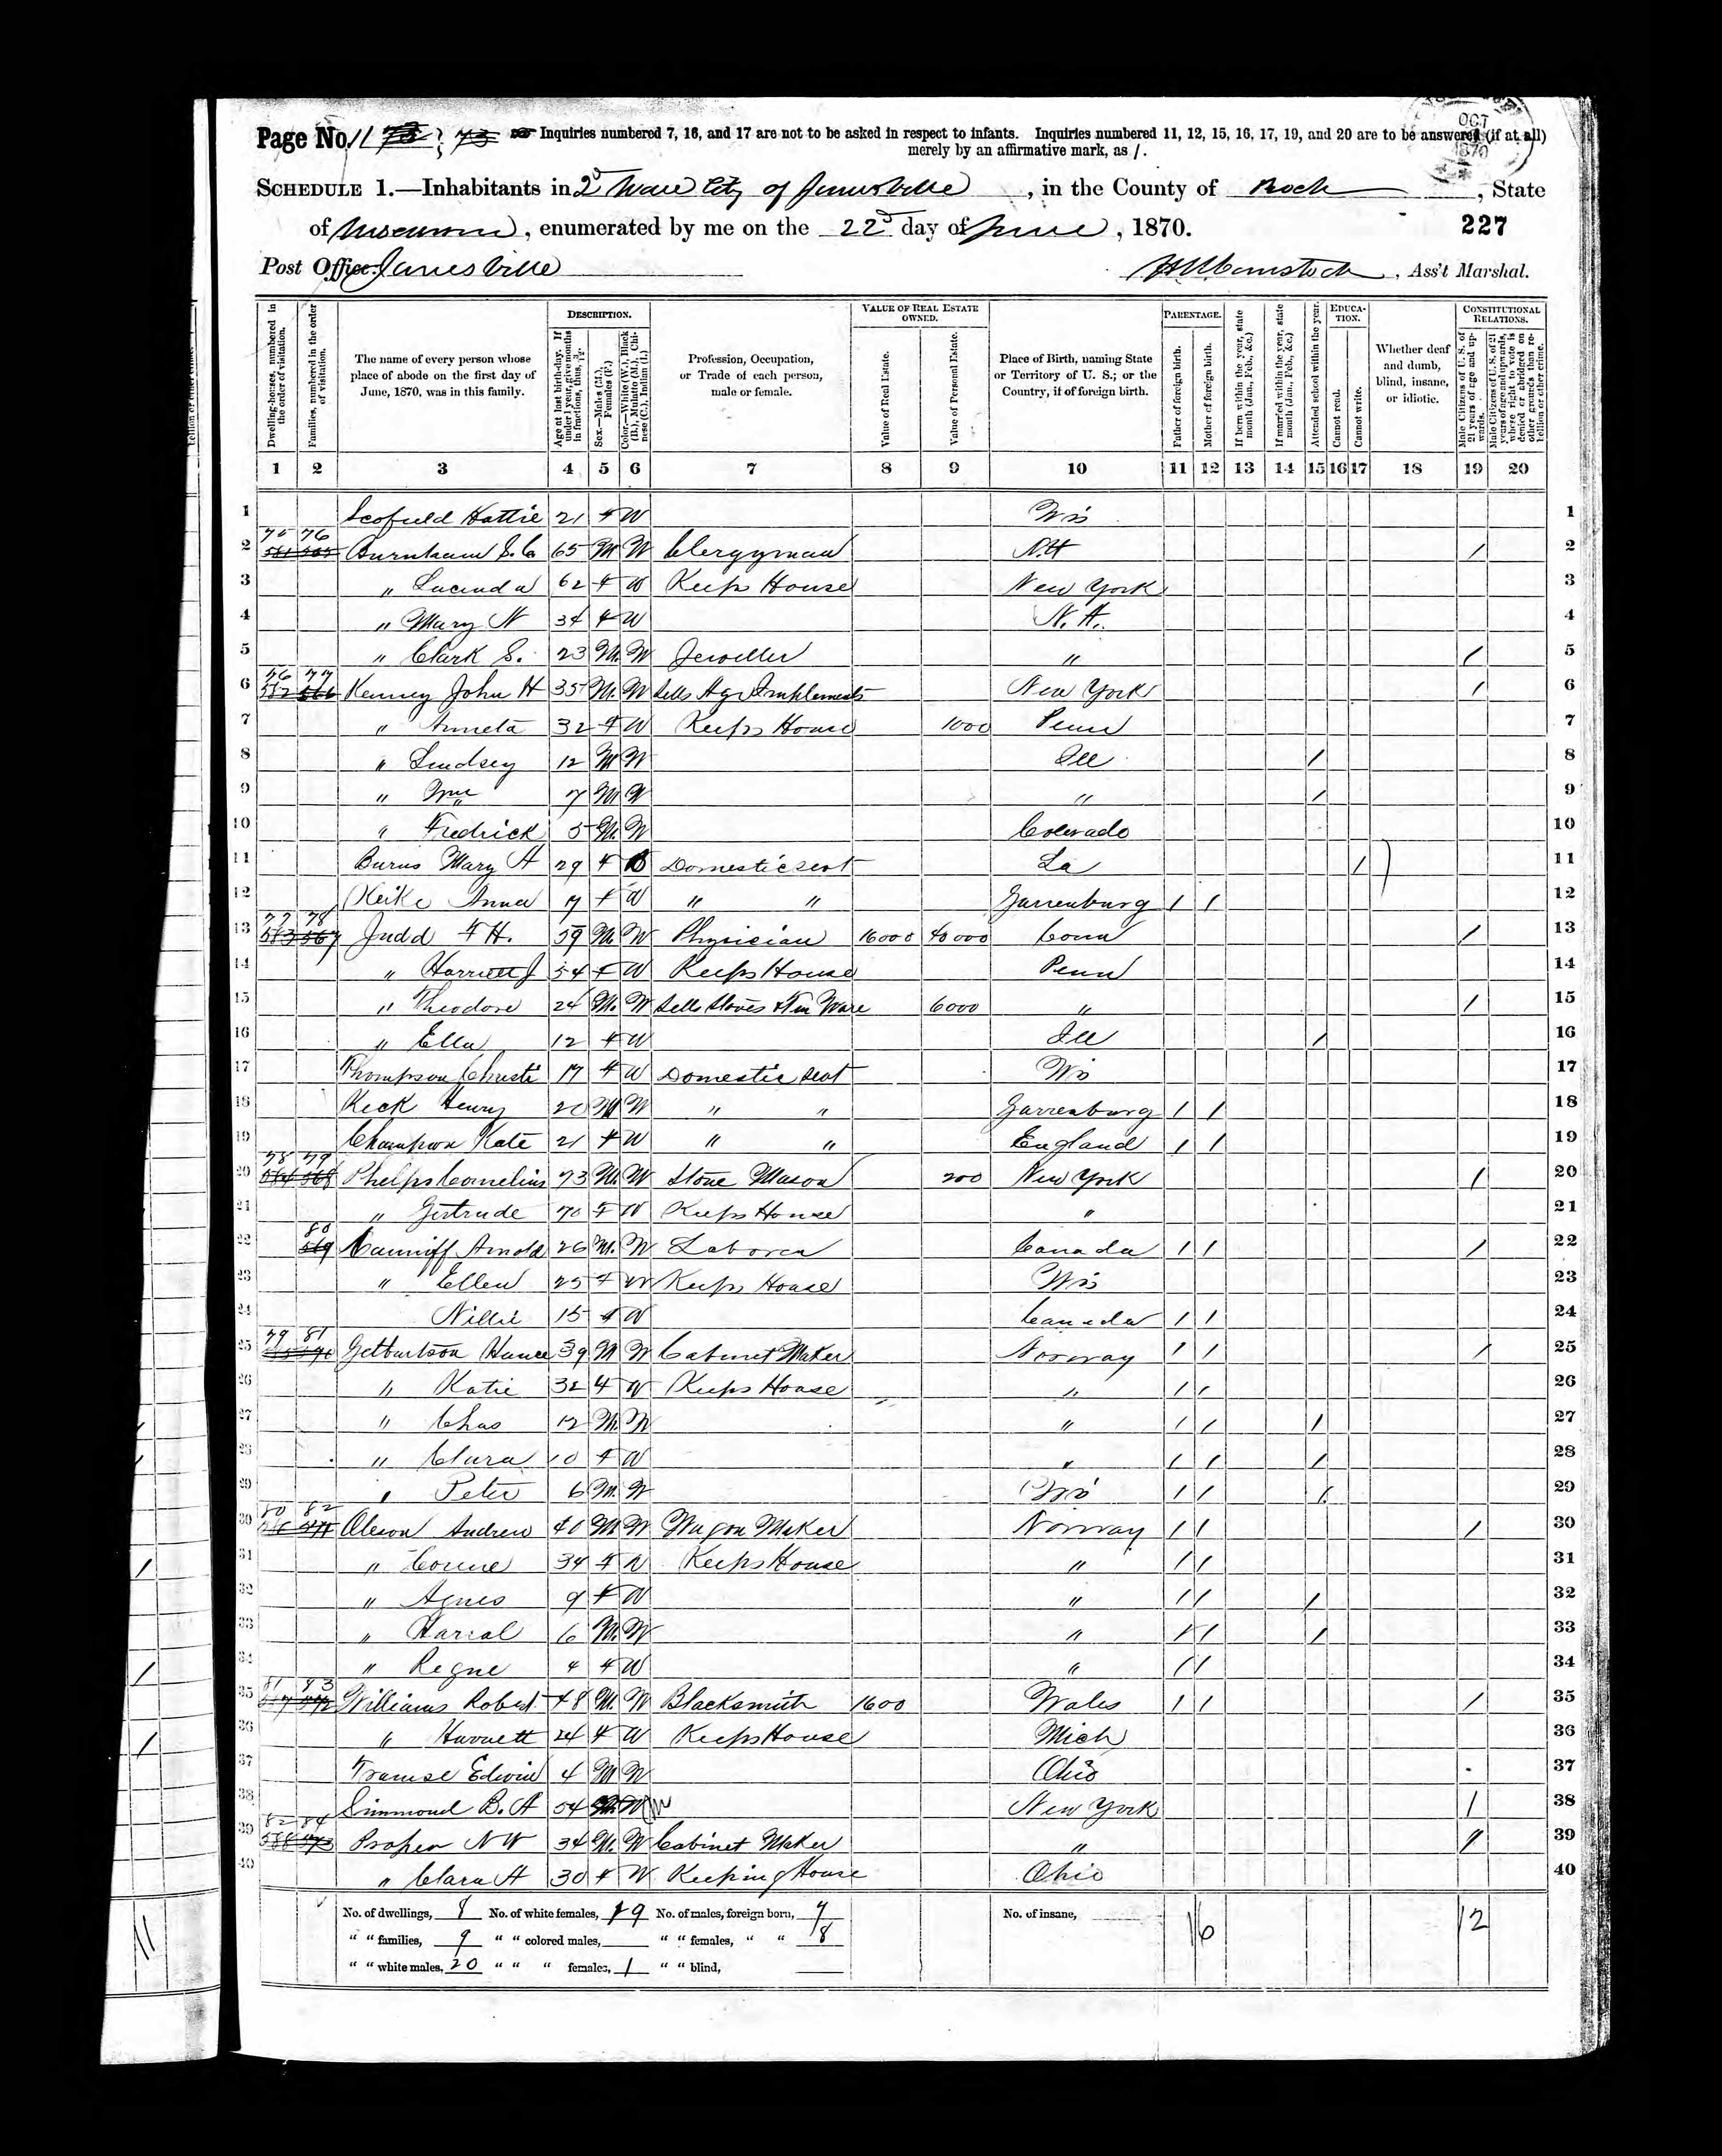 Page No. 11
Inquiries numbered 7, 16, and 17 are not to be asked in respect to infants. Inquiries numbered 11, 12, 15, 16, 17, 19, and 20 are to be answered (if at all)
merely by an affirmative mark, as /.
OCT
1870
SCHEDULE 1.—Inhabitants in 2d Ward City of Janesville, in the County of Rock, State
of Wisconsin, enumerated by me on the 22d day of June, 1870.
227
Post Office: Janesville
Comstock, Ass't Marshal.
Dwelling-houses, numbered in the order of visitation.
Families, numbered in the order of visitation.
The name of every person whose place of abode on the first day of June, 1870, was in this family.
DESCRIPTION.
Age at last birth-day. If under 1 year, give months in fractions, thus, 3/12.
Sex.—Males (M.), Females (F.)
Color.—White (W.), Black (B.), Mulatto (M.), Chinese (C.), Indian (I.)
Profession, Occupation, or Trade of each person, male or female.
VALUE OF REAL ESTATE OWNED.
Value of Real Estate.
Value of Personal Estate.
Place of Birth, naming State or Territory of U. S.; or the Country, if of foreign birth.
PARENTAGE.
Father of foreign birth.
Mother of foreign birth.
If born within the year, state month (Jan., Feb., &c.)
If married within the year, state month (Jan., Feb., &c.)
Attended school within the year.
EDUCATION.
Cannot read.
Cannot write.
Whether deaf and dumb, blind, insane, or idiotic.
CONSTITUTIONAL RELATIONS.
Male Citizens of U. S. of 21 years of age and upwards.
Male Citizens of U. S. of 21 years of age and upwards, where right to vote is denied or abridged on other grounds than rebellion or other crime.
1 2 3 4 5 6 7 8 9 10 11 12 13 14 15 16 17 18 19 20
1 Scofield Hattie 21 F W Wis 1
2 75 76 Burnham S. C. 65 M W Clergyman N.H / 2
3 " Lucinda 62 F W Keeps House New York 3
4 " Mary N 34 F W N. H. 4
5 " Clark S. 23 M. W Jeweller " / 5
6 76 77 Kenney John H 35 M. W Sells Agr Implements New York / 6
7 " Anneta 32 F W Keeps House 1000 Penn 7
8 " Lindsey 12 M W Ill / 8
9 " Wm 7 M W " / 9
10 " Fredrick 5 M. W Colorado 10
11 Burns Mary A 29 F B Domestic Servt La / 11
12 Keike Anna 17 F W " " / / 12
13 77 78 Judd F H. 59 M. W Physician 16000 40000 Conn / 13
14 " Harriett J 54 F W Keeps House Penn 14
15 " Theodore 24 M. W Sells Stoves & Tin Ware 6000 " / 15
16 " Ella 12 F W Ill / 16
17 Thompson Christi 17 F W Domestic Servt Wis 17
18 Keck Henry 20 M W " " / / 18
19 Champion Kate 21 F W " " England / / 19
20 78 79 Phelps Cornelius 73 M. W Stone Mason 200 New York / 20
21 " Gertrude 70 F W Keeps House " 21
22 80 Canniff Arnold 26 M. W Laborer Canada / / / 22
23 " Ellen 25 F W Keeps House Wis 23
24 Nillie 15 F W Canada / / 24
25 79 81 Getbertson 39 M W Cabinet Maker Norway / / / 25
26 " Katie 32 F W Keeps House " / / 26
27 " Chas 12 M. W " / / / 27
28 " Clara 10 F W " / / / 28
29 " Peter 6 M. W Wis / / / 29
30 80 82 Oleson Andrew 40 M W Wagon Maker Norway / / / 30
31 " Corine 34 F W Keeps House " / / 31
32 " Agnes 9 F W " / / / 32
33 " Harral 6 M. W " / / / 33
34 " Regne 4 F W " / / 34
35 81 83 Williams Robert 48 M. W Blacksmith 1600 Wales / / / 35
36 " Harriett 24 F W Keeps House Mich 36
37 Edwin 4 M W Ohio 37
38 Simmond B. A 54 M W New York / 38
39 82 84 Proper N W 34 M. W Cabinet Maker " / 39
40 " Clara A 30 F W Keeping House Ohio 40
No. of dwellings, 8 No. of white females, 19 No. of males, foreign born, 7 No. of insane, 16 12
" " families, 9 " " colored males, " " females, " " 8
" " white males, 20 " " " females, 1 " " blind,
11